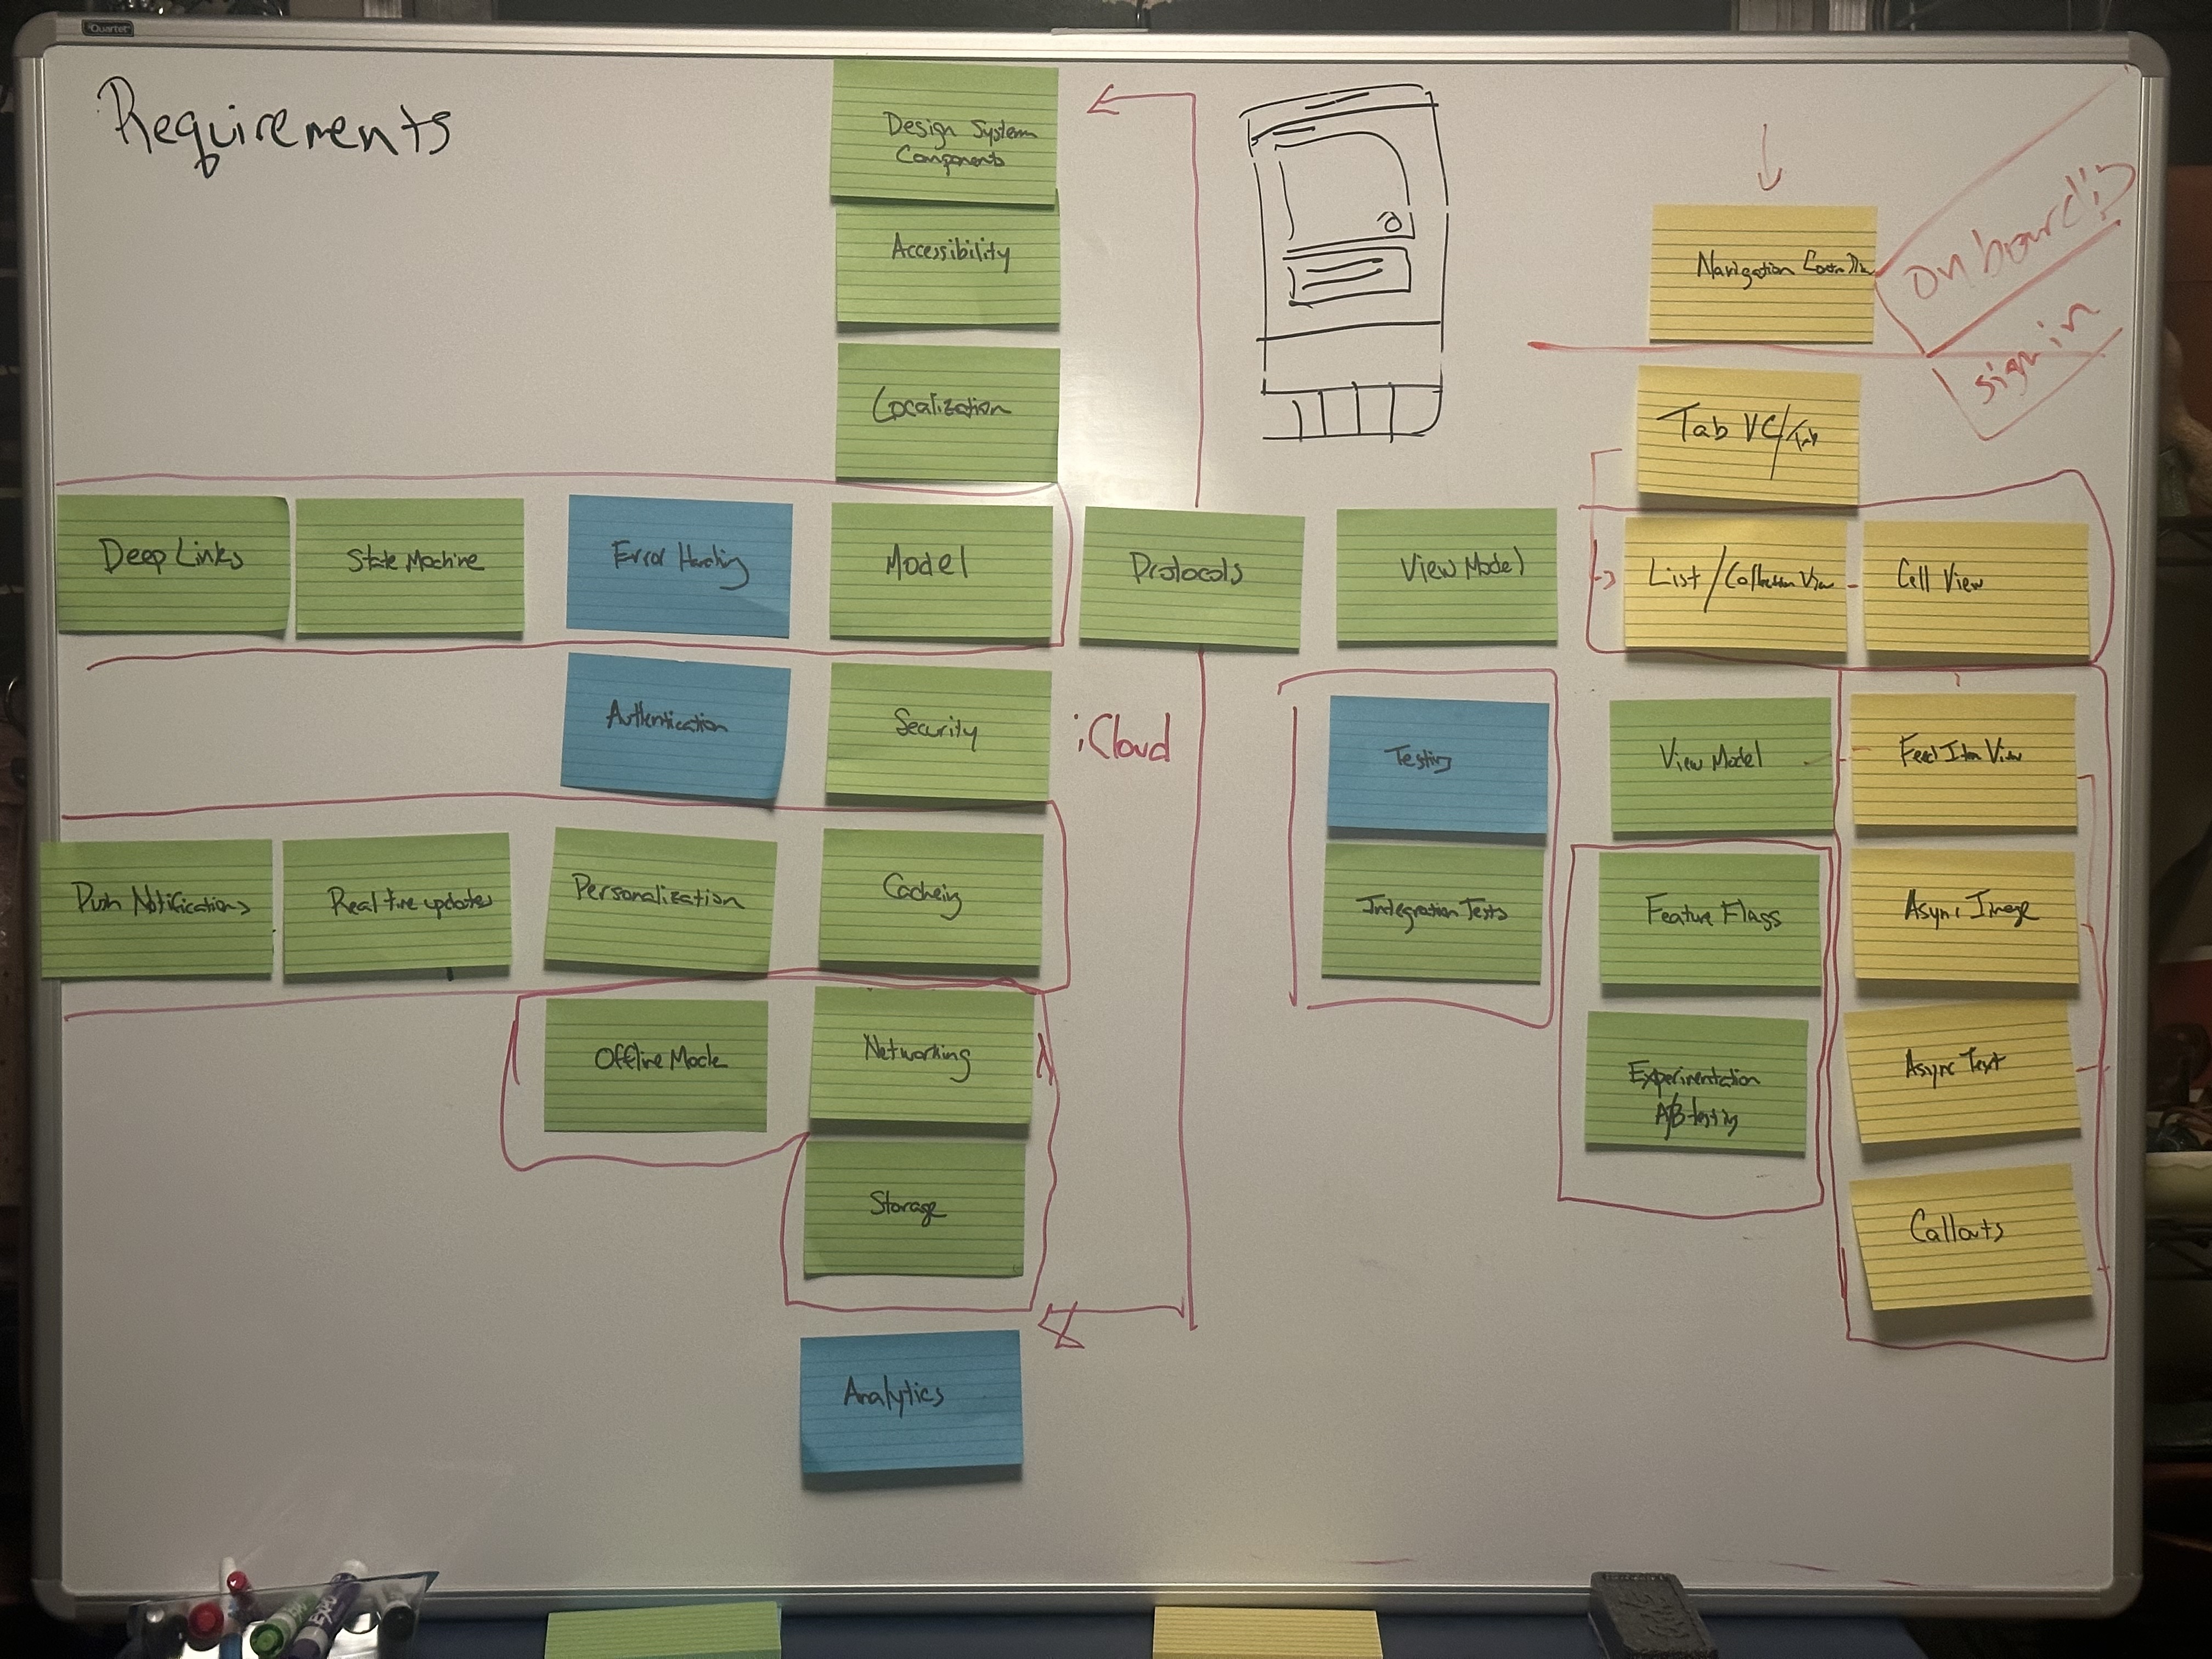 Quartet
Requirements
Design System
Components
Accessibility
Localization
Navigation
onboarding
sign in
Tab VC/Tab
Deep Links
State Machine
Error Handling
Model
Protocols
View Model
List/Collection View
Cell View
Authentication
Security
iCloud
Testing
View Model
Feed Item View
Push Notifications
Real time updates
Personalization
Cacheing
Integration Tests
Feature Flags
Async Image
Offline Mode
Networking
Experimentation
A/B testing
Async Text
Storage
Callouts
Analytics
EXPO